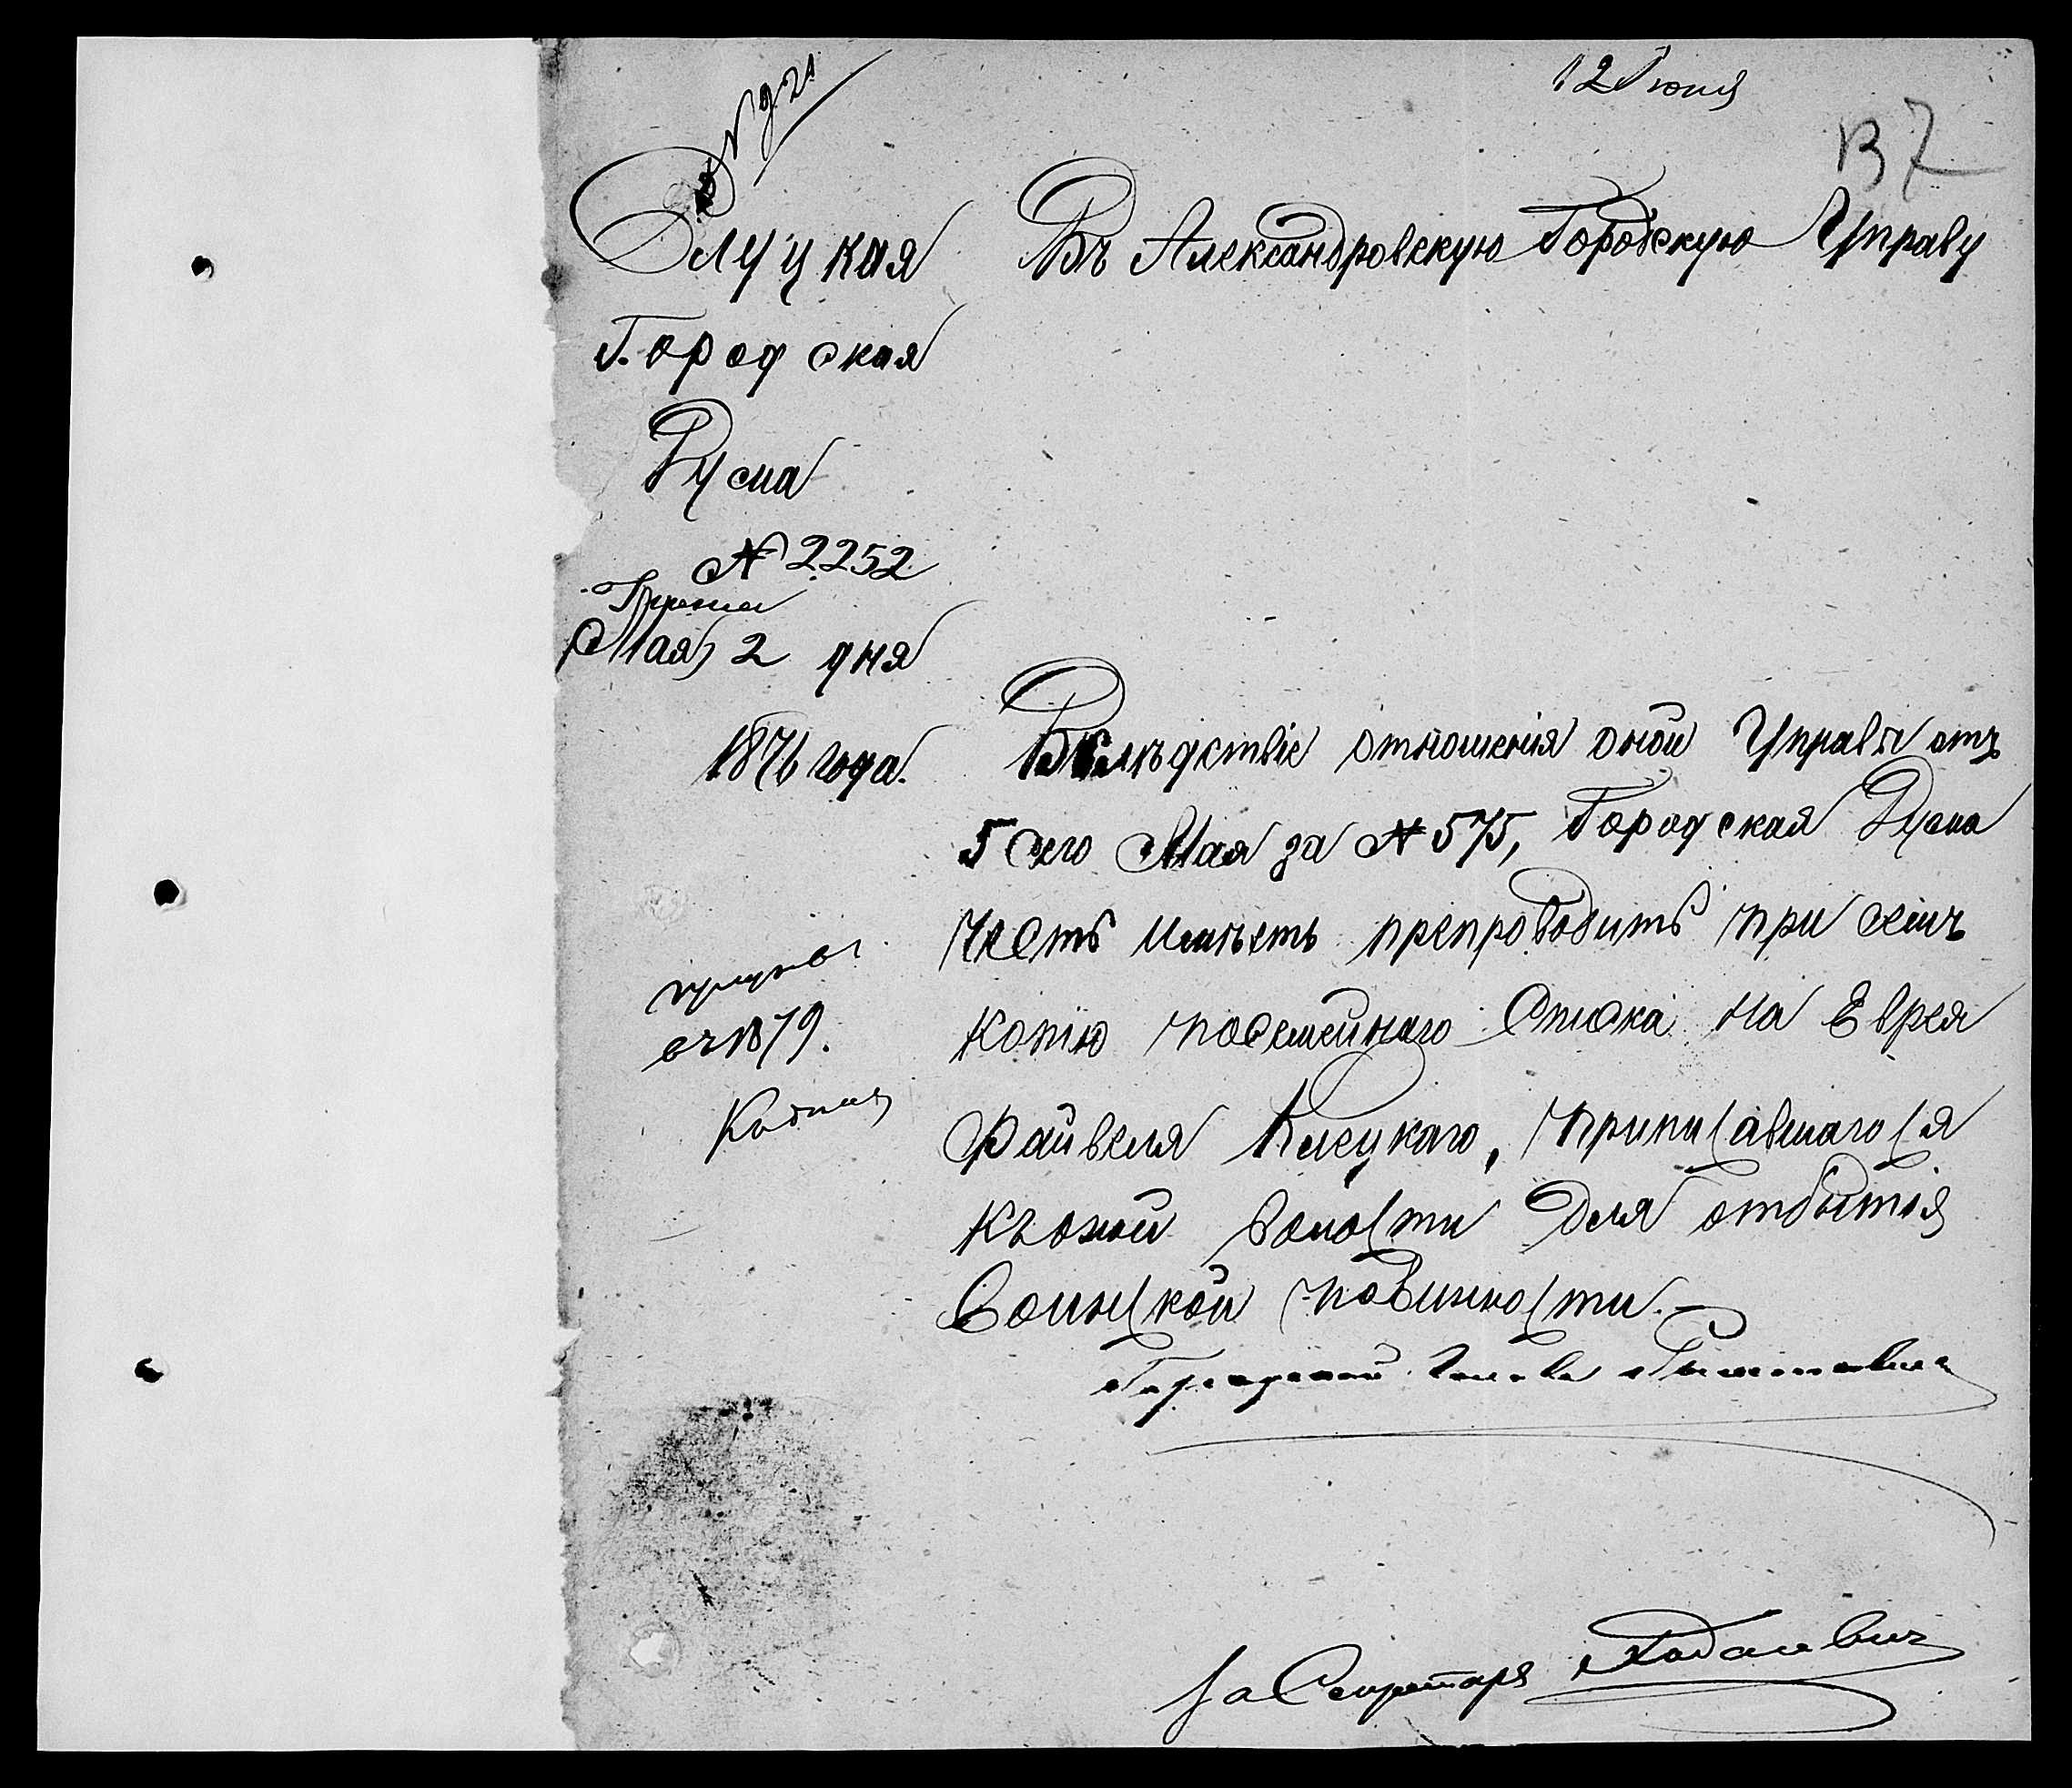 12 Іюня
№ 921
137
Слуцкая
Городская
Дума
№ 2252
Іюня
(Мая) 2 дня
1876 года.
Въ Александровскую Городскую Управу
Вслѣдствіе отношенія оной Управы отъ
5 сего Мая за № 575, Городская Дума
честь имѣетъ препроводить при семъ
копію посемейнаго списка на Еврея
Файвеля Клецкаго, приписавшагося
къ оной волости для отбытія
воинской повинности.
Городской Голова
1879.
За Секретаря